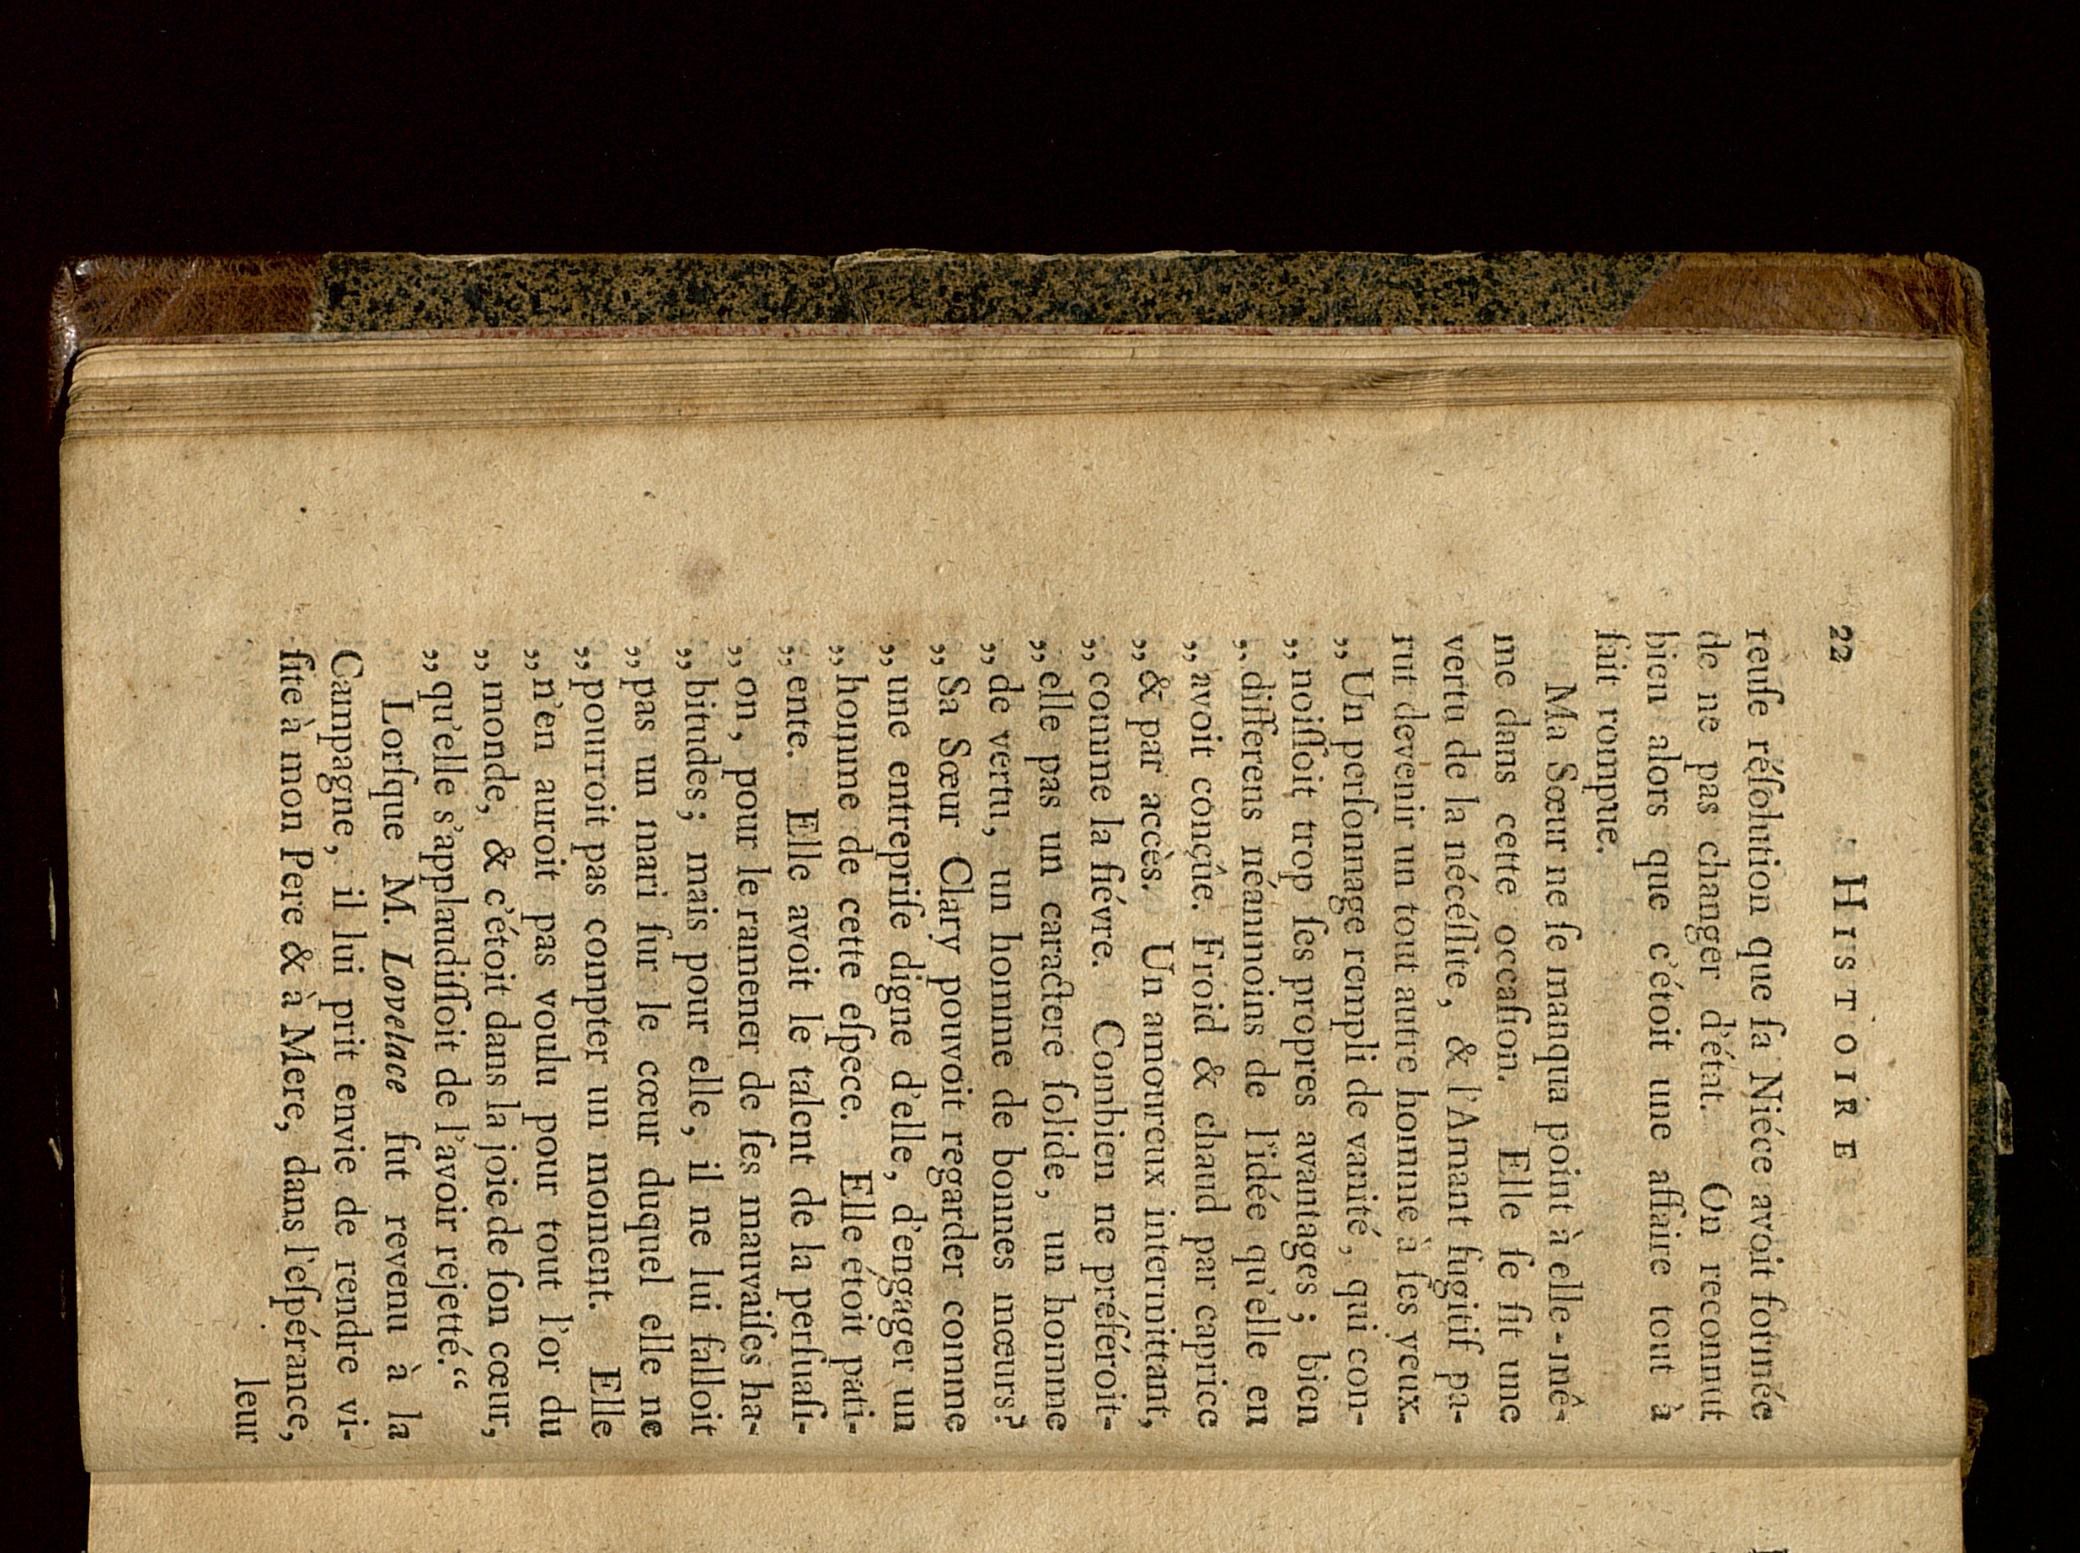 22 HISTOIRE
reuſe réſolution que ſa Niéce avoit formée
de ne pas changer d'état. On reconnut
bien alors que c'étoit une affaire tout à
fait rompue.
Ma Sœur ne ſe manqua point à elle-mê-
me dans cette occaſion. Elle ſe fit une
vertu de la nécéſſite, & l'Amant fugitif pa-
rut devenir un tout autre homme à ſes yeux.
„ Un perſonnage rempli de vanité, qui con-
„ noiſſoit trop ſes propres avantages; bien
„ differens néanmoins de l'idée qu'elle en
„ avoit conçûe. Froid & chaud par caprice
„ & par accès. Un amoureux intermittant,
„ comme la fiévre. Combien ne préféroit-
„ elle pas un caractere ſolide, un homme
„ de vertu, un homme de bonnes mœurs?
„ Sa Sœur Clary pouvoit regarder comme
„ une entrepriſe digne d'elle, d'engager un
„ homme de cette eſpece. Elle étoit pati-
„ ente. Elle avoit le talent de la perſuaſi-
„ on, pour le ramener de ſes mauvaiſes ha-
„ bitudes; mais pour elle, il ne lui falloit
„ pas un mari ſur le cœur duquel elle ne
„ pourroit pas compter un moment. Elle
„ n'en auroit pas voulu pour tout l'or du
„ monde, & c'étoit dans la joie de ſon cœur,
„ qu'elle s'applaudiſſoit de l'avoir rejetté.“
Lorſque M. Lovelace fut revenu à la
Campagne, il lui prit envie de rendre vi-
ſite à mon Pere & à Mere, dans l'eſpérance,
leur